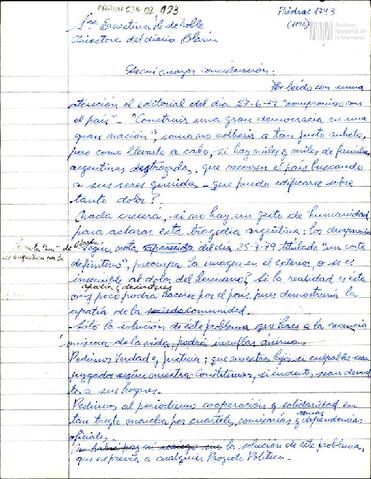 Piedras 1743
(1070)
Archivo
Nacional de
la Memoria
Sra Ernestina H de Noble
Directora del diario Clarín
De mi mayor consideración:
He leído con suma
atención el editorial del día 27-6-79 "compromiso con
el país" - "Construir una gran democracia en una
gran nación", como no adherir a tan justo anhelo,
pero como llevarlo a cabo, si hay miles y miles de familias
argentinas destrozadas, que recorren el país buscando
a sus seres queridos - que puede edificarse sobre
tanto dolor?
Nada crecerá, si no hay un gesto de humanidad
para aclarar esta tragedia argentina: los desaparecidos
Según nota aparecida del día 25-7-79 titulado "un corte
definitivo", preocupa la imagen en el exterior, o se es
insensible al dolor del hermano? Si la realidad es esta
muy poco podrá hacerse por el país pues demostraría la
apatía de la comunidad.
Sólo la solución de este problema que hace a la esencia
misma de la vida, podrá
Pedimos Verdad y Justicia; que nuestros hijos si culpables sean
juzgados según nuestra Constitución, si inocentes, sean devuel-
tos a sus hogares.
Pedimos al periodismo cooperación y solidaridad en
tan triste marcha por cuarteles, comisarías y dependencias
oficiales.
No habrá paz ni sosiego sin la solución de este problema,
que es previa a cualquier Proyecto Político.